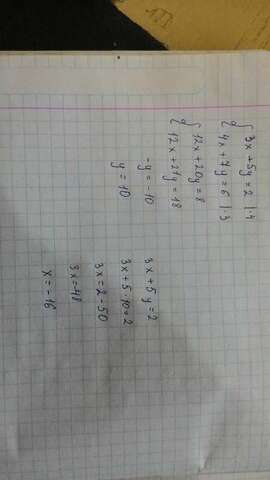 { 3x + 5y = 2 | ·4
{ 4x + 7y = 6 | ·3
{ 12x + 20y = 8
{ 12x + 21y = 18
-y = -10
y = 10
3x + 5y = 2
3x + 5·10 = 2
3x = 2 - 50
3x = -48
x = -16